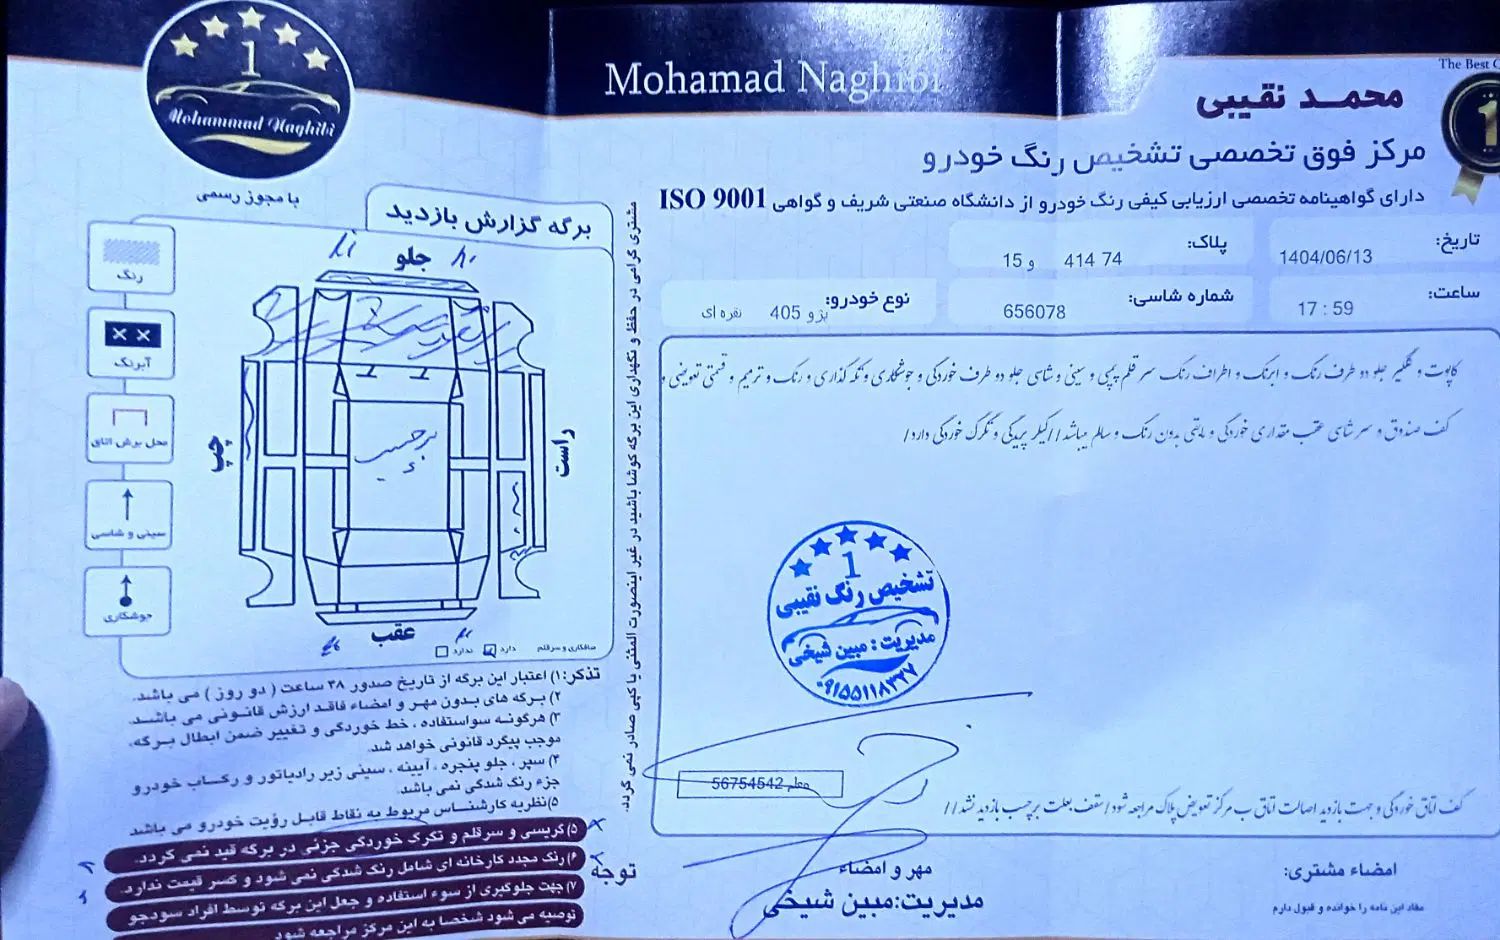 The Best
1
Mohammad Naghibi
با مجوز رسمی
Mohamad Naghibi
محمد نقیبی
مرکز فوق تخصصی تشخیص رنگ خودرو
دارای گواهینامه تخصصی ارزیابی کیفی رنگ خودرو از دانشگاه صنعتی شریف و گواهی ISO 9001
تاریخ: 1404/06/13
پلاک: 74 414 و 15
ساعت: 17 : 59
شماره شاسی: 656078
نوع خودرو: پژو 405 نقره ای
کاپوت و گلگیر جلو دو طرف رنگ و ابرنگ و اطراف رنگ سر قلم پمپی و سینی و شاسی جلو دو طرف خوردگی و جوشکاری و تکه گذاری و رنگ و ترمیم و قسمتی تعویضی و
کف صندوق و سر شاسی عقب مقداری خوردگی و مابقی بدون رنگ و سالم میباشد//کیلر پریدگی و تگرگ خوردگی دارد/
1
تشخیص رنگ نقیبی
مدیریت: مبین شیخی
۰۹۱۵۵۱۱۸۳۲۷
معلم 56754542
کف اتاق خوردگی و جهت بازدید اصالت اتاق ب مرکز تعویض پلاک مراجعه شود/سقف بعلت برچسب بازدید نشد//
امضاء مشتری:
مفاد این نامه را خوانده و قبول دارم
مهر و امضاء
مدیریت:مبین شیخی
مشتری گرامی در حفظ و نگهداری این برگه کوشا باشید در غیر اینصورت المثنی یا کپی صادر نمی گردد.
برگه گزارش بازدید
جلو
چپ
راست
عقب
برچسب
رنگ
آبرنگ
محل برش اتاق
سینی و شاسی
جوشکاری
صافکاری و سرقلم دارد ندارد
تذکر: ۱) اعتبار این برگه از تاریخ صدور ۴۸ ساعت ( دو روز ) می باشد.
۲) برگه های بدون مهر و امضاء فاقد ارزش قانونی می باشد.
۳) هرگونه سواستفاده ، خط خوردگی و تغییر ضمن ابطال برگه،
موجب پیگرد قانونی خواهد شد.
۴) سپر ، جلو پنجره ، آیینه ، سینی زیر رادیاتور و رکاب خودرو
جزء رنگ شدگی نمی باشد.
۵) نظریه کارشناس مربوط به نقاط قابل رؤیت خودرو می باشد
توجه
۵) گریسی و سرقلم و تگرگ خوردگی جزئی در برگه قید نمی گردد.
۶) رنگ مجدد کارخانه ای شامل رنگ شدگی نمی شود و کسر قیمت ندارد.
۷) جهت جلوگیری از سوء استفاده و جعل این برگه توسط افراد سودجو
توصیه می شود شخصا به این مرکز مراجعه شود